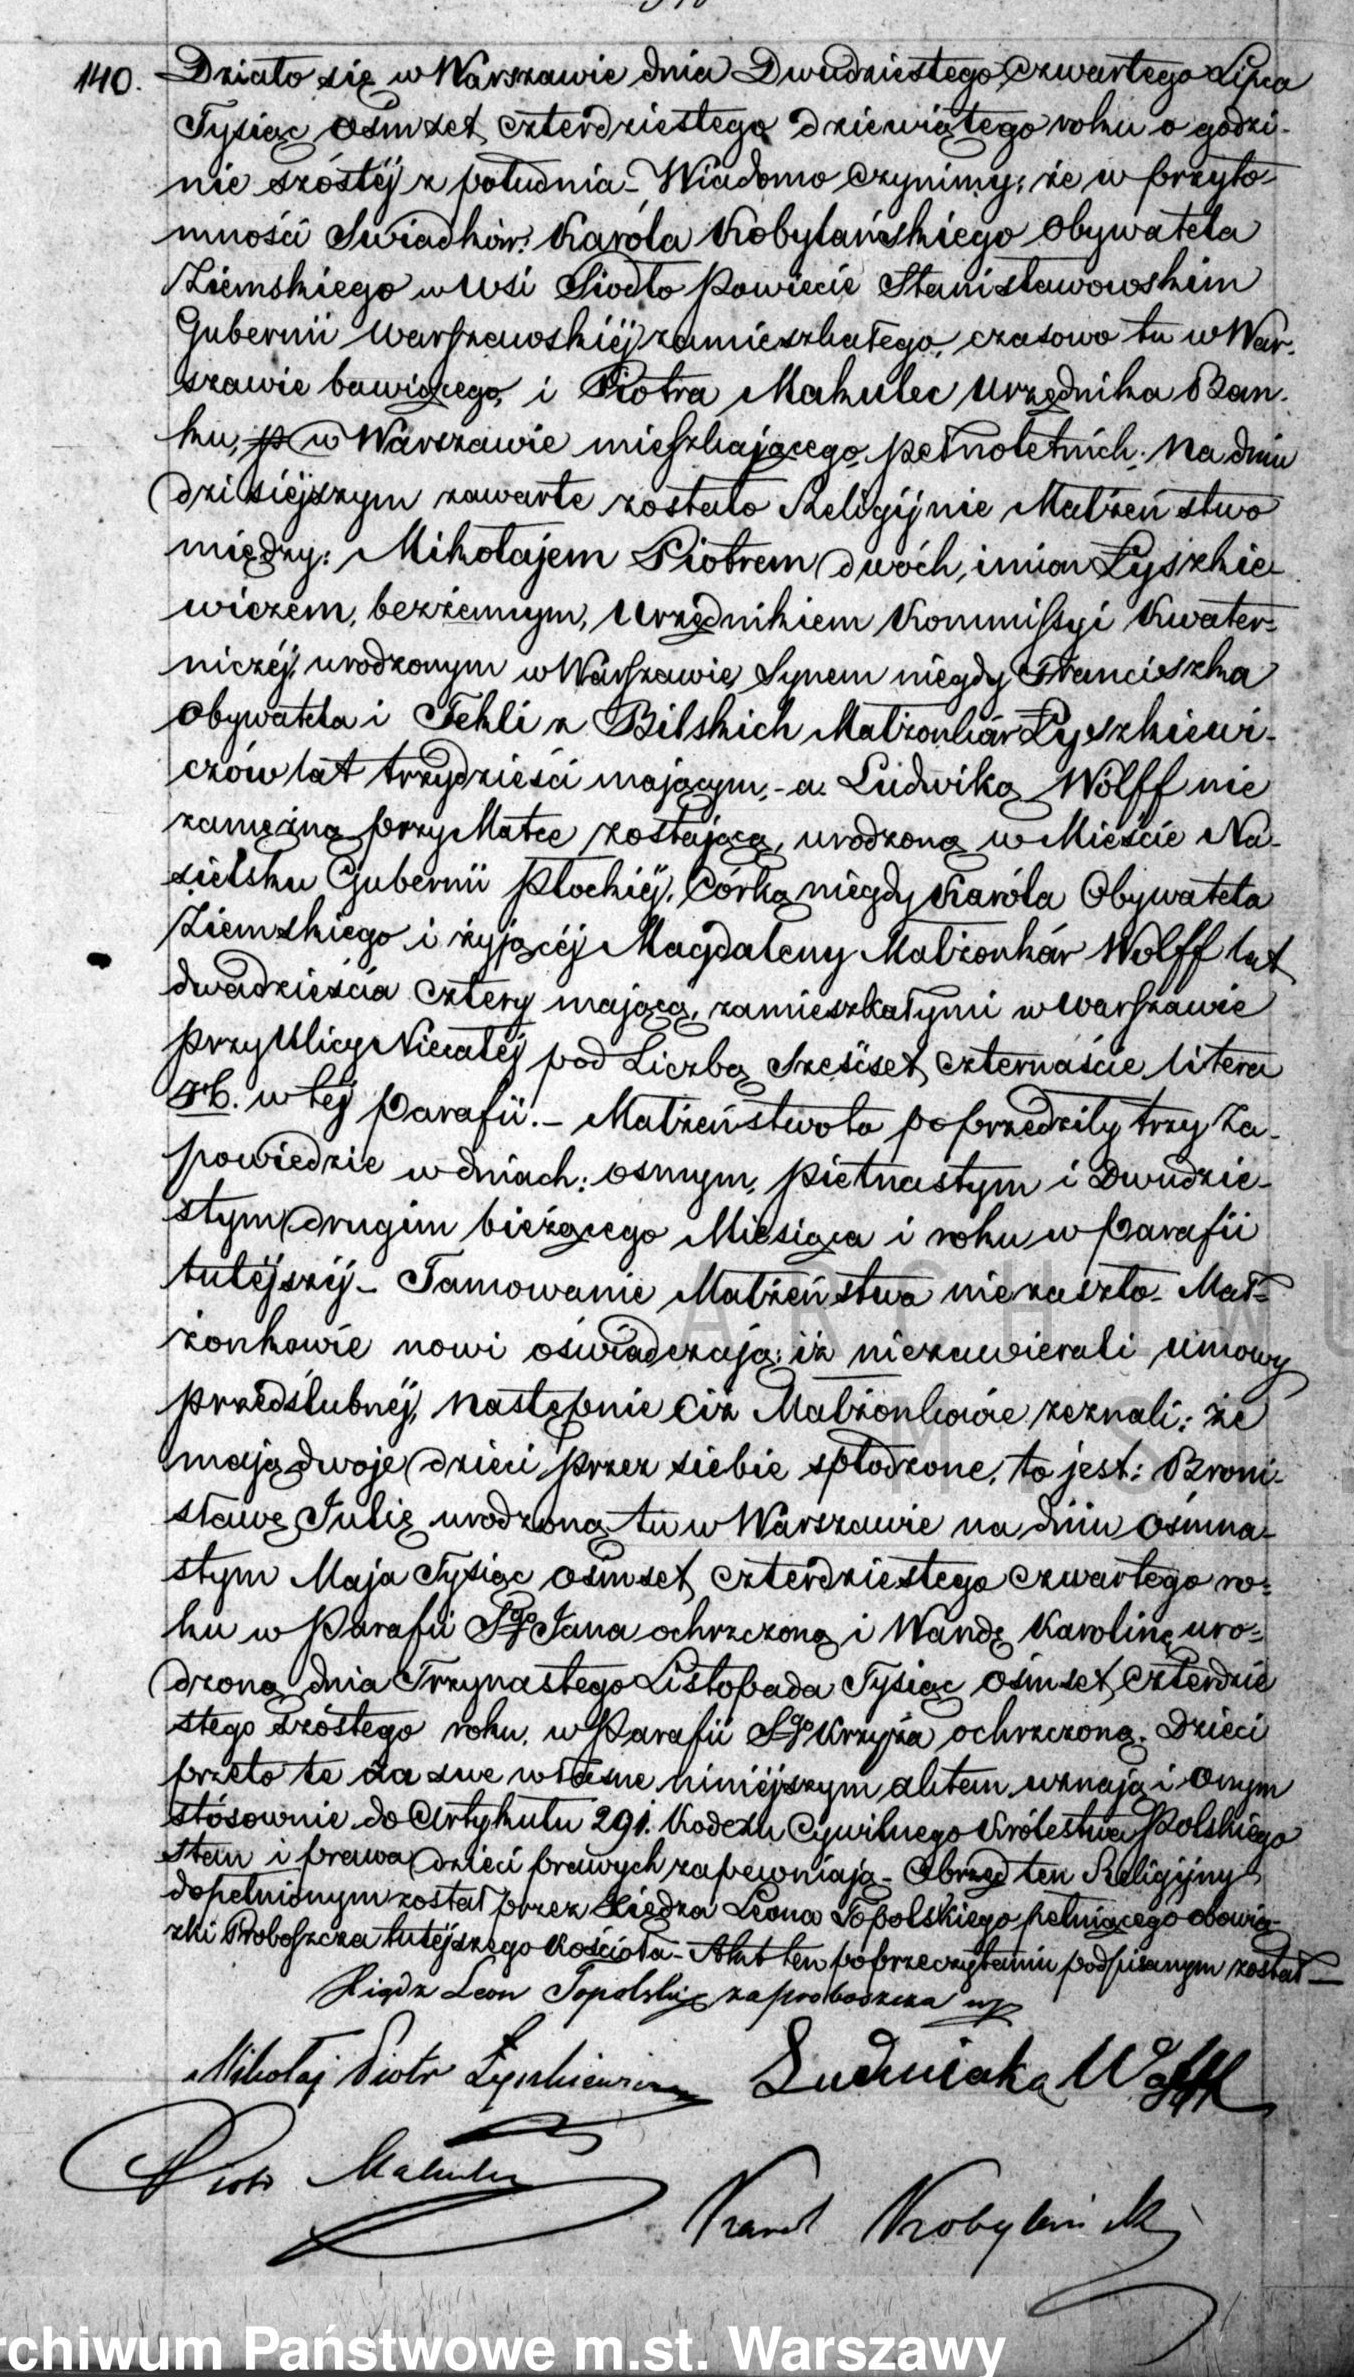 140. Działo się w Warszawie dnia Dwudziestego czwartego Lipca
Tysiąc ośmset czterdziestego dziewiątego roku o godzi-
nie szóstéj z południa - Wiadomo czynimy, że w przyto-
mności Świadków: Karóla Kobylańskiego Obywatela
Ziemskiego w Wsi Siodło Powiecie Stanisławowskim
Gubernii Warszawskiéj zamieszkałego, czasowo tu w War-
szawie bawiącego, i Piotra Makulec Urzędnika Ban-
ku, w Warszawie mieszkającego, pełnoletnich; Na dniu
dzisiejszym zawarte zostało Religijnie Małżeństwo
między: Mikołajem Piotrem dwóch imion Łyszkie-
wiczem, bezżennym, Urzędnikiem Kommissyi Kwater-
niczéj, urodzonym w Warszawie, Synem niegdy Franciszka
Obywatela i Tekli z Bilskich Małżonków Łyszkiewi-
czów lat trzydzieści mającym, - a Ludwiką Wolff nie
zamężną przy Matce zostającą, urodzoną w Mieście Na-
sielsku Gubernii Płockiéj, Córką niegdy Karóla Obywatela
Ziemskiego i żyjącéj Magdaleny Małżonków Wolff lat
dwadzieścia cztery mającą, zamieszkałymi w Warszawie
przy Ulicy Niecałéj pod Liczbą Sześćset czternaście litera
w téj Parafii. - Małżeństwo to poprzedziły trzy Za-
powiedzie w dniach: osmym, piętnastym i Dwudzie-
stym drugim bieżącego Miesiąca i roku w Parafii
tutéjszéj - Tamowanie Małżeństwa nie zaszło - Mał-
żonkowie nowi oświadczają, iż nie zawierali umowy
przedślubnéj, następnie Ciż Małżonkowie zeznali: że
mają dwoje dzieci przez siebie spłodzone, to jest: Broni-
sławę Julię urodzoną tu w Warszawie na dniu ośmna-
stym Maja Tysiąc ośmset czterdziestego czwartego ro-
ku w Parafii Sgo Jana ochrzczoną i Wandę Karolinę uro-
dzoną dnia Trzynastego Listopada Tysiąc ośmset czterdzie
stego szóstego roku, w Parafii Sgo Krzyża ochrzczoną. Dzieci
przeto te za swe własne niniejszym aktem uznają i onym
stósownie do Artykułu 291. Kodexu Cywilnego Królestwa Polskiego
stan i prawa dzieci prawych zapewniają - Obrzęd ten Religijny
dopełnionym został przez Xiędza Leona Topolskiego pełniącego obowią-
zki Proboszcza tutéjszego Kościoła - Akt ten po przeczytaniu podpisanym został -
Xiądz Leon Topolski za proboszcza mp
Mikołaj Piotr Łyszkiewicz Ludwika Wolff
Piotr Makulec
Karol Kobylański
ARCHIWU
M. ST.
rchiwum Państwowe m.st. Warszawy